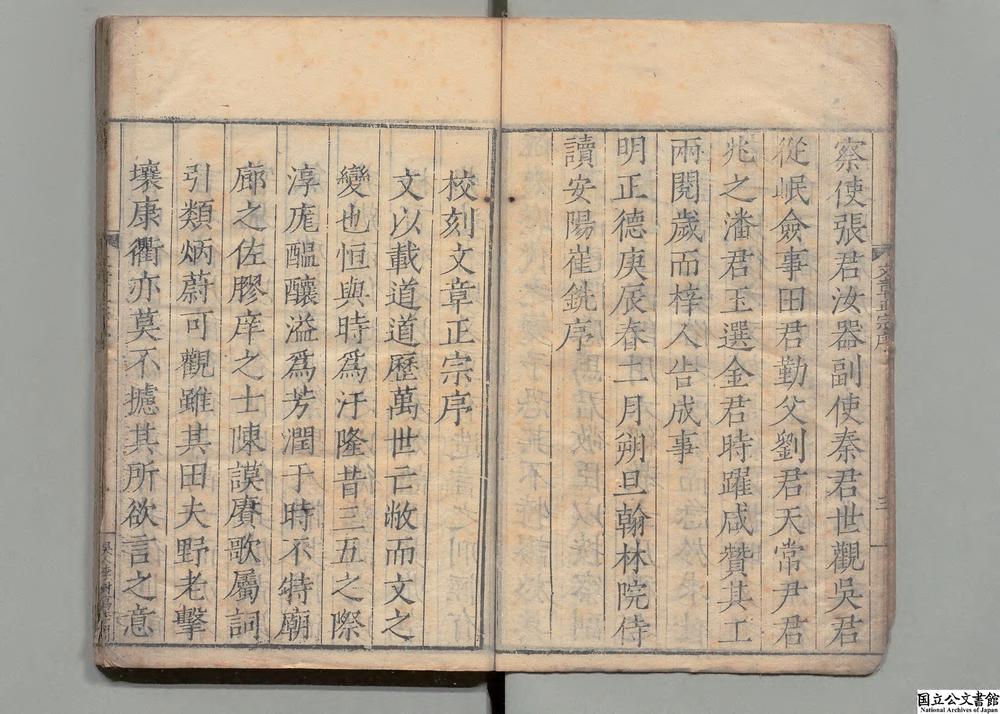 察使張君汝器副使秦君世觀吳君
從岷僉事田君勤父劉君天常尹君
兆之潘君玉選金君時躍咸贊其工
兩閱歲而梓人告成事
明正德庚辰春正月朔旦翰林院侍
讀安陽崔銑序
文章正宗序
三
校刻文章正宗序
文以載道道歷萬世亡敝而文之
變也恒與時爲汙隆昔三五之際
淳庬醞釀溢爲芳潤于時不特廟
廊之佐膠庠之士陳謨賡歌屬詞
引類炳蔚可觀雖其田夫野老擊
壤康衢亦莫不攄其所欲言之意
国立公文書館
National Archives of Japan